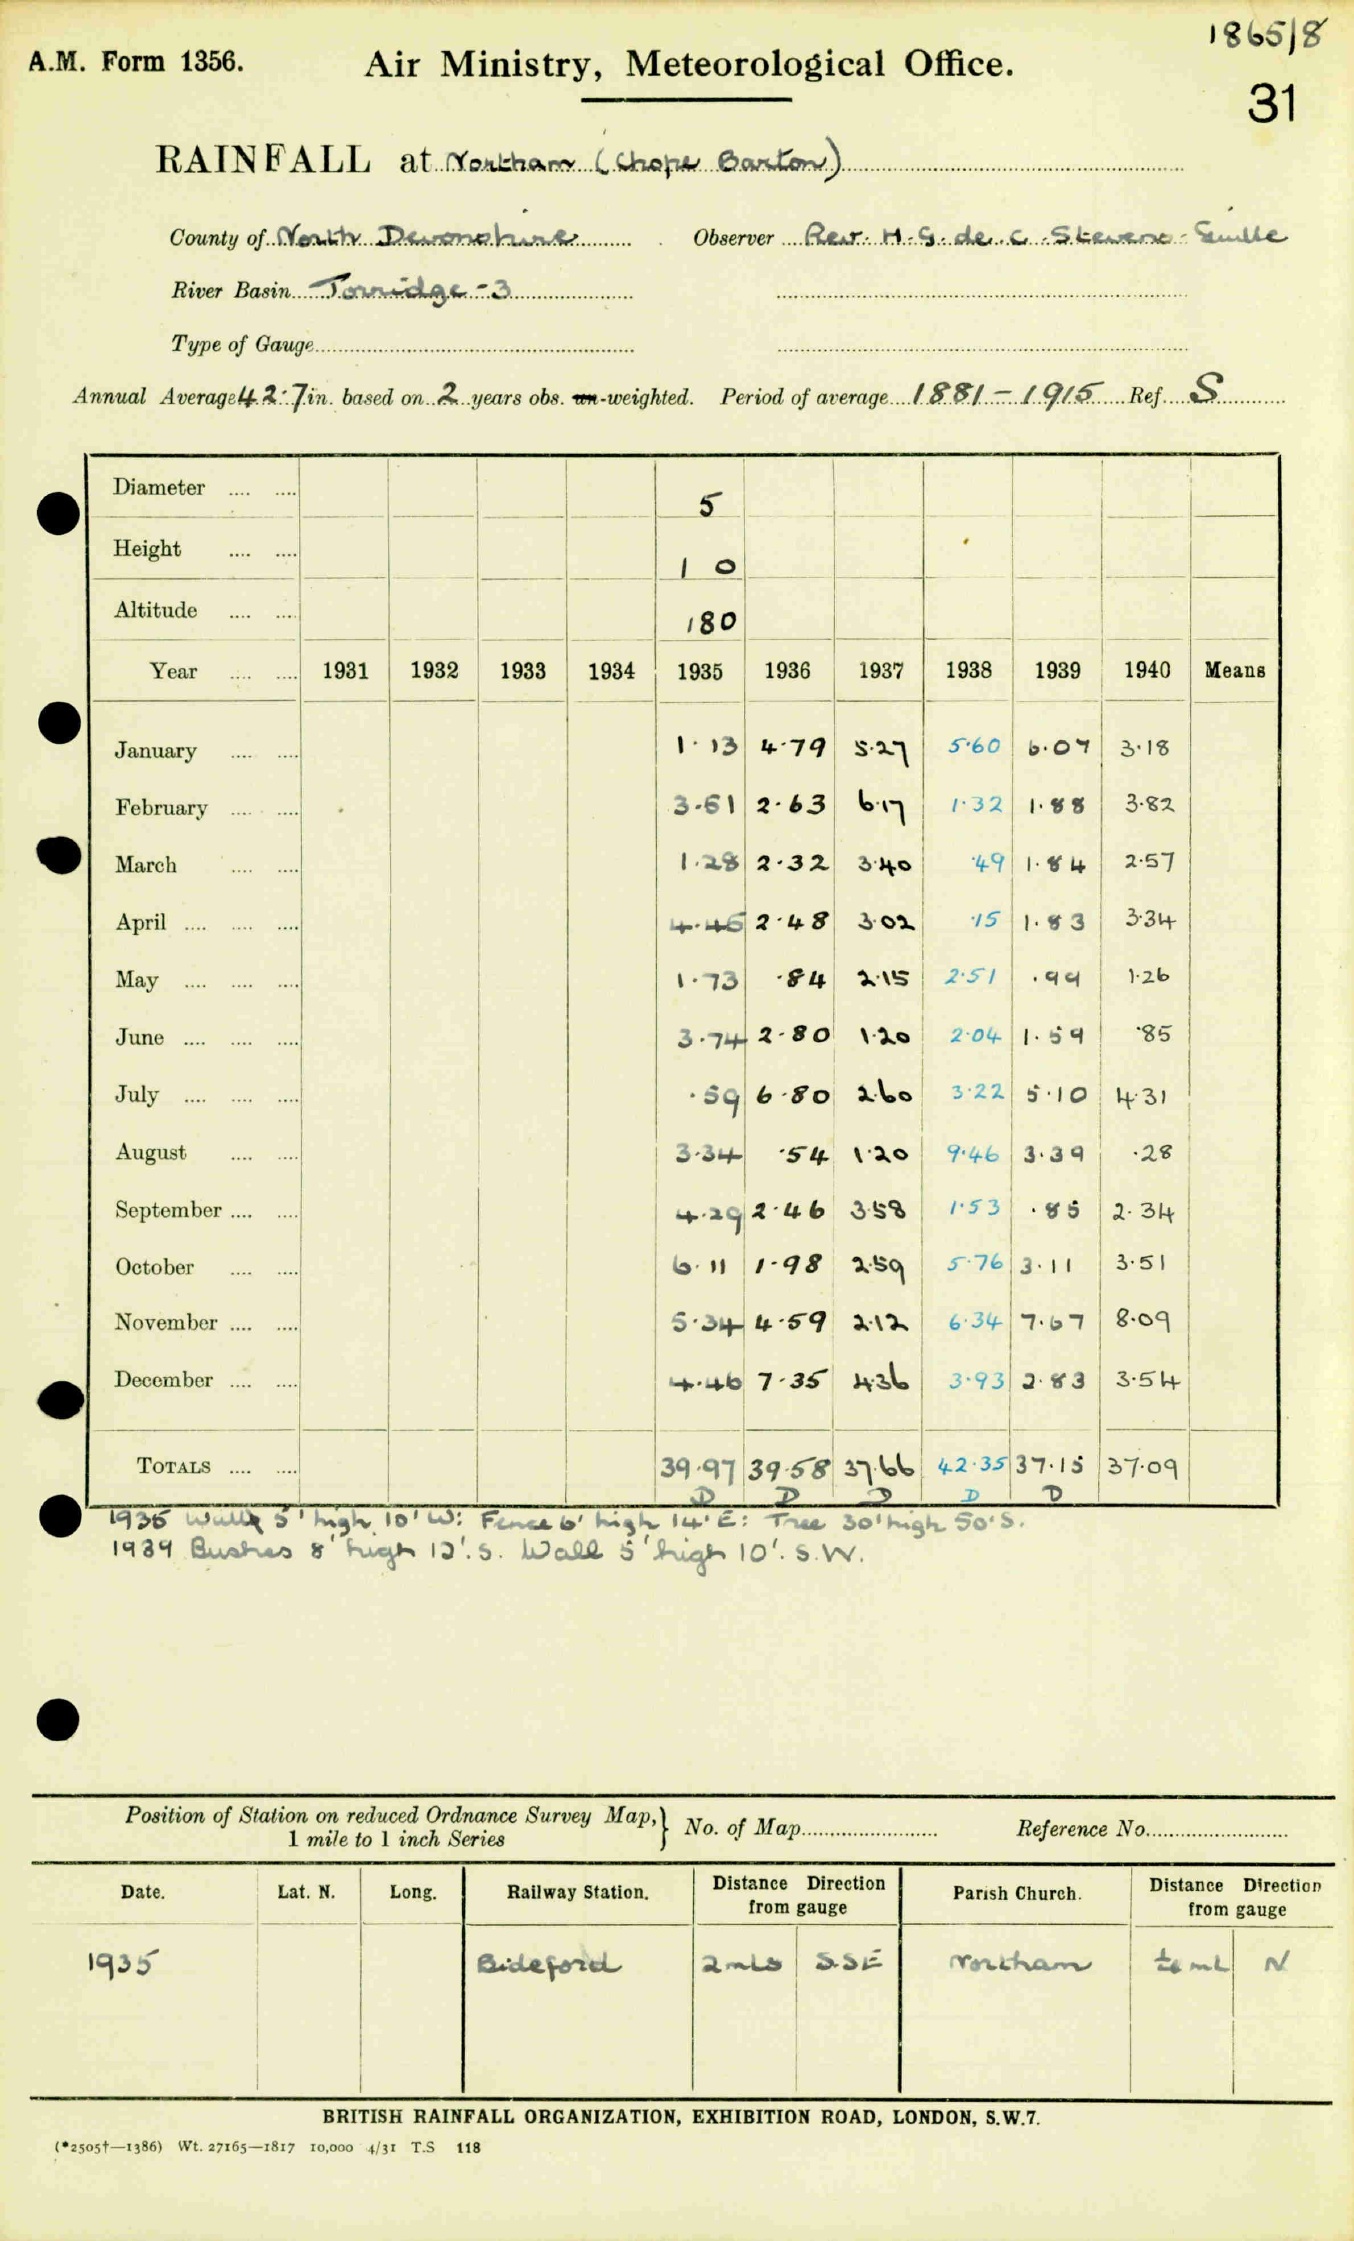 1865/8
A.M. Form 1356. Air Ministry, Meteorological Office.
31
RAINFALL at Northam (Chope Barton)
County of North Devonshire Observer Rev. H.G. de. C. Stevens-Guille
River Basin Torridge - 3
Type of Gauge
Annual Average 42.7 in. based on 2 years obs. un-weighted. Period of average 1881-1915 Ref. S
Diameter 5
Height 1 0
Altitude 180
Year 1931 1932 1933 1934 1935 1936 1937 1938 1939 1940 Means
January 1.13 4.79 5.27 5.60 6.07 3.18
February 3.51 2.63 6.17 1.32 1.88 3.82
March 1.28 2.32 3.40 .49 1.84 2.57
April 4.45 2.48 3.02 .15 1.83 3.34
May 1.73 .84 2.15 2.51 .99 1.26
June 3.74 2.80 1.20 2.04 1.59 .85
July .59 6.80 2.60 3.22 5.10 4.31
August 3.34 .54 1.20 9.46 3.39 .28
September 4.29 2.46 3.58 1.53 .85 2.34
October 6.11 1.98 2.59 5.76 3.11 3.51
November 5.34 4.59 2.12 6.34 7.67 8.09
December 4.46 7.35 4.36 3.93 2.83 3.54
TOTALS 39.97 39.58 37.66 42.35 37.15 37.09
D D D D D
1935 Wall 5' high 10' W: Fence 6' high 14' E: Tree 30' high 50' S.
1939 Bushes 8' high 12'. S. Wall 5' high 10'. S.W.
Position of Station on reduced Ordnance Survey Map, } No. of Map Reference No.
1 mile to 1 inch Series
Date. Lat. N. Long. Railway Station. Distance Direction from gauge Parish Church. Distance Direction from gauge
1935 Bideford 2 mls SSE Northam ml N
BRITISH RAINFALL ORGANIZATION, EXHIBITION ROAD, LONDON, S.W.7.
(*2505†—1386) Wt. 27165—1817 10,000 4/31 T.S 118